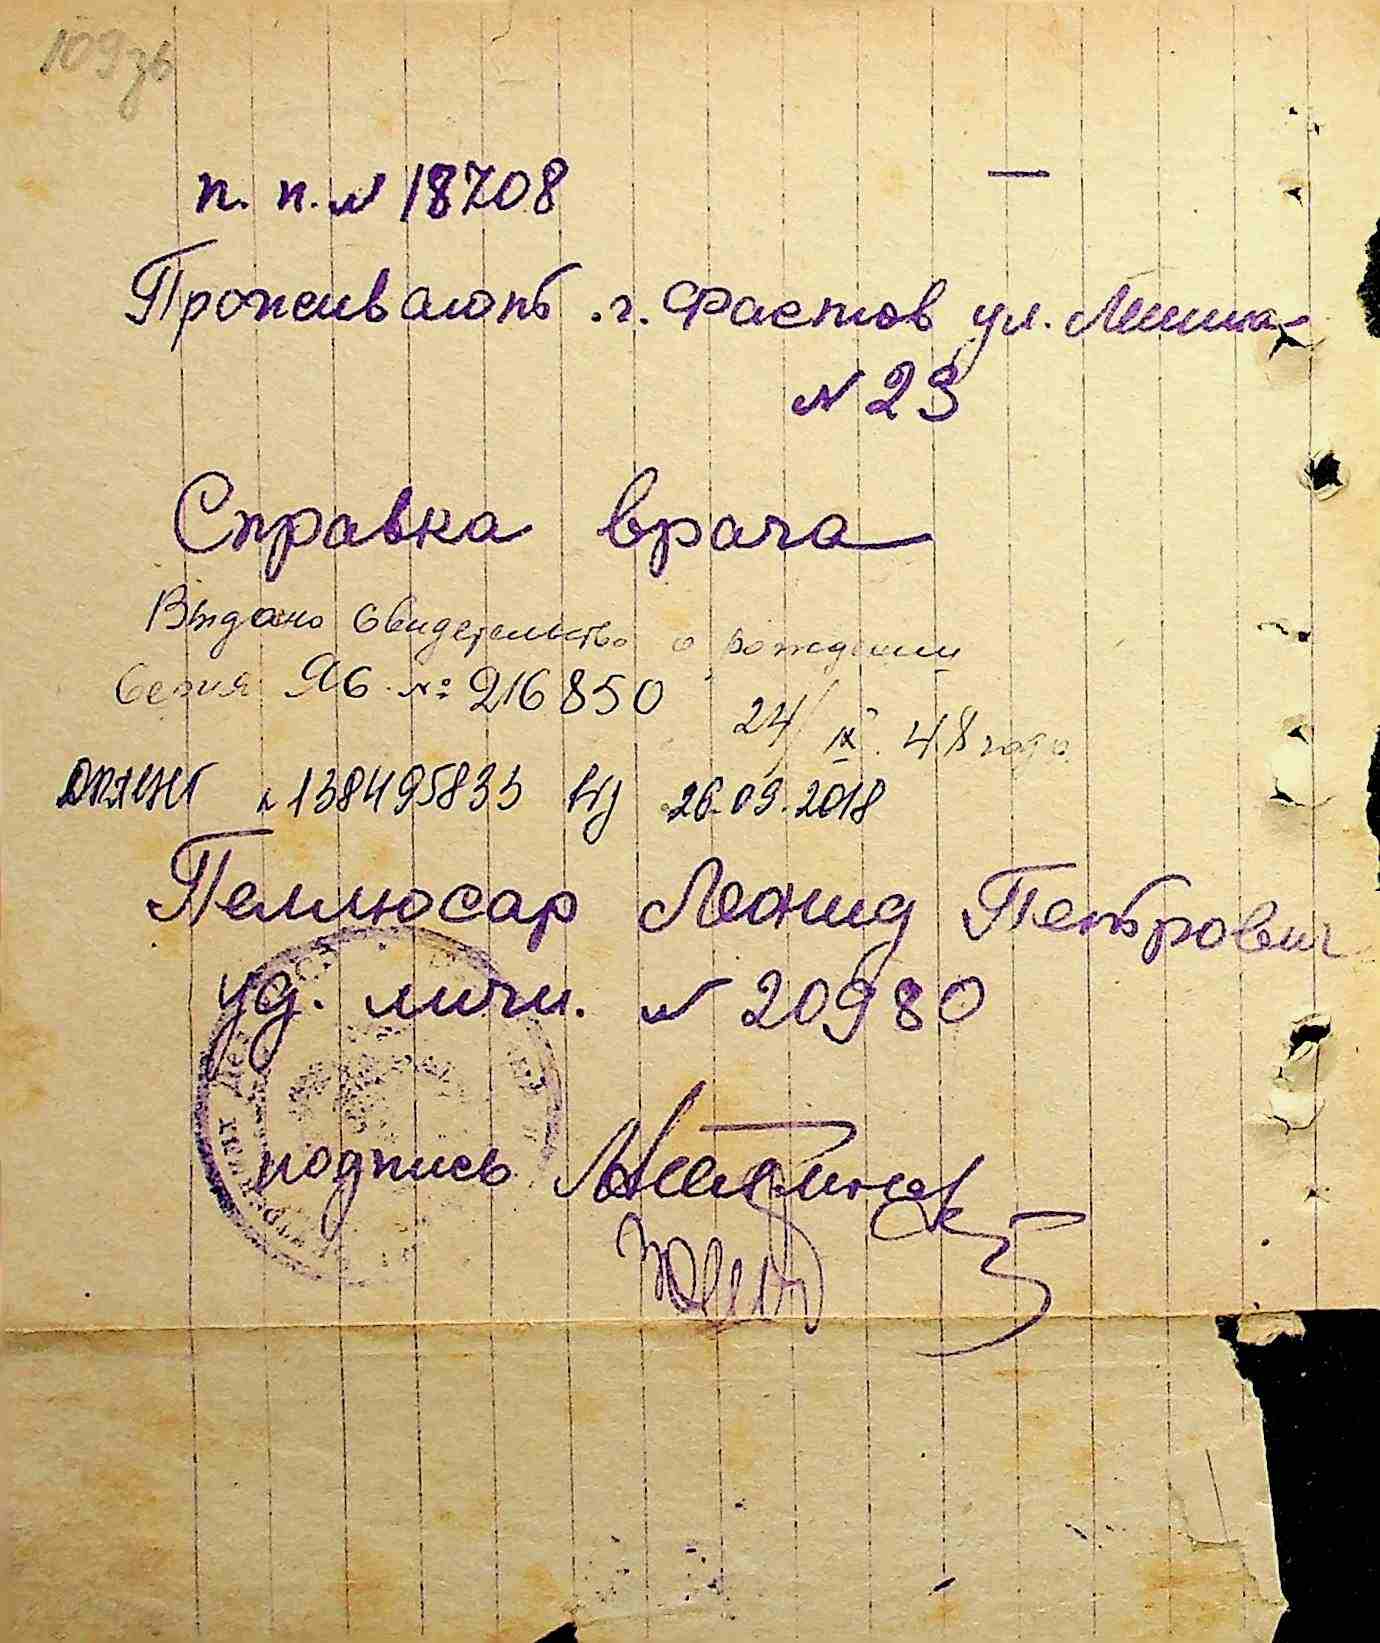 109 зв
п. п. № 18708 —
Проживают г. Фастов ул. Ленина
№ 23
Справка врача
Выдано Свидетельство о рождении
Серия ЯБ № 216850 24/IX. 48 года
№ 138495833 від 26.09.2018
Пеллюсар Леонид Петрович
уд. личн. № 20980
подпись